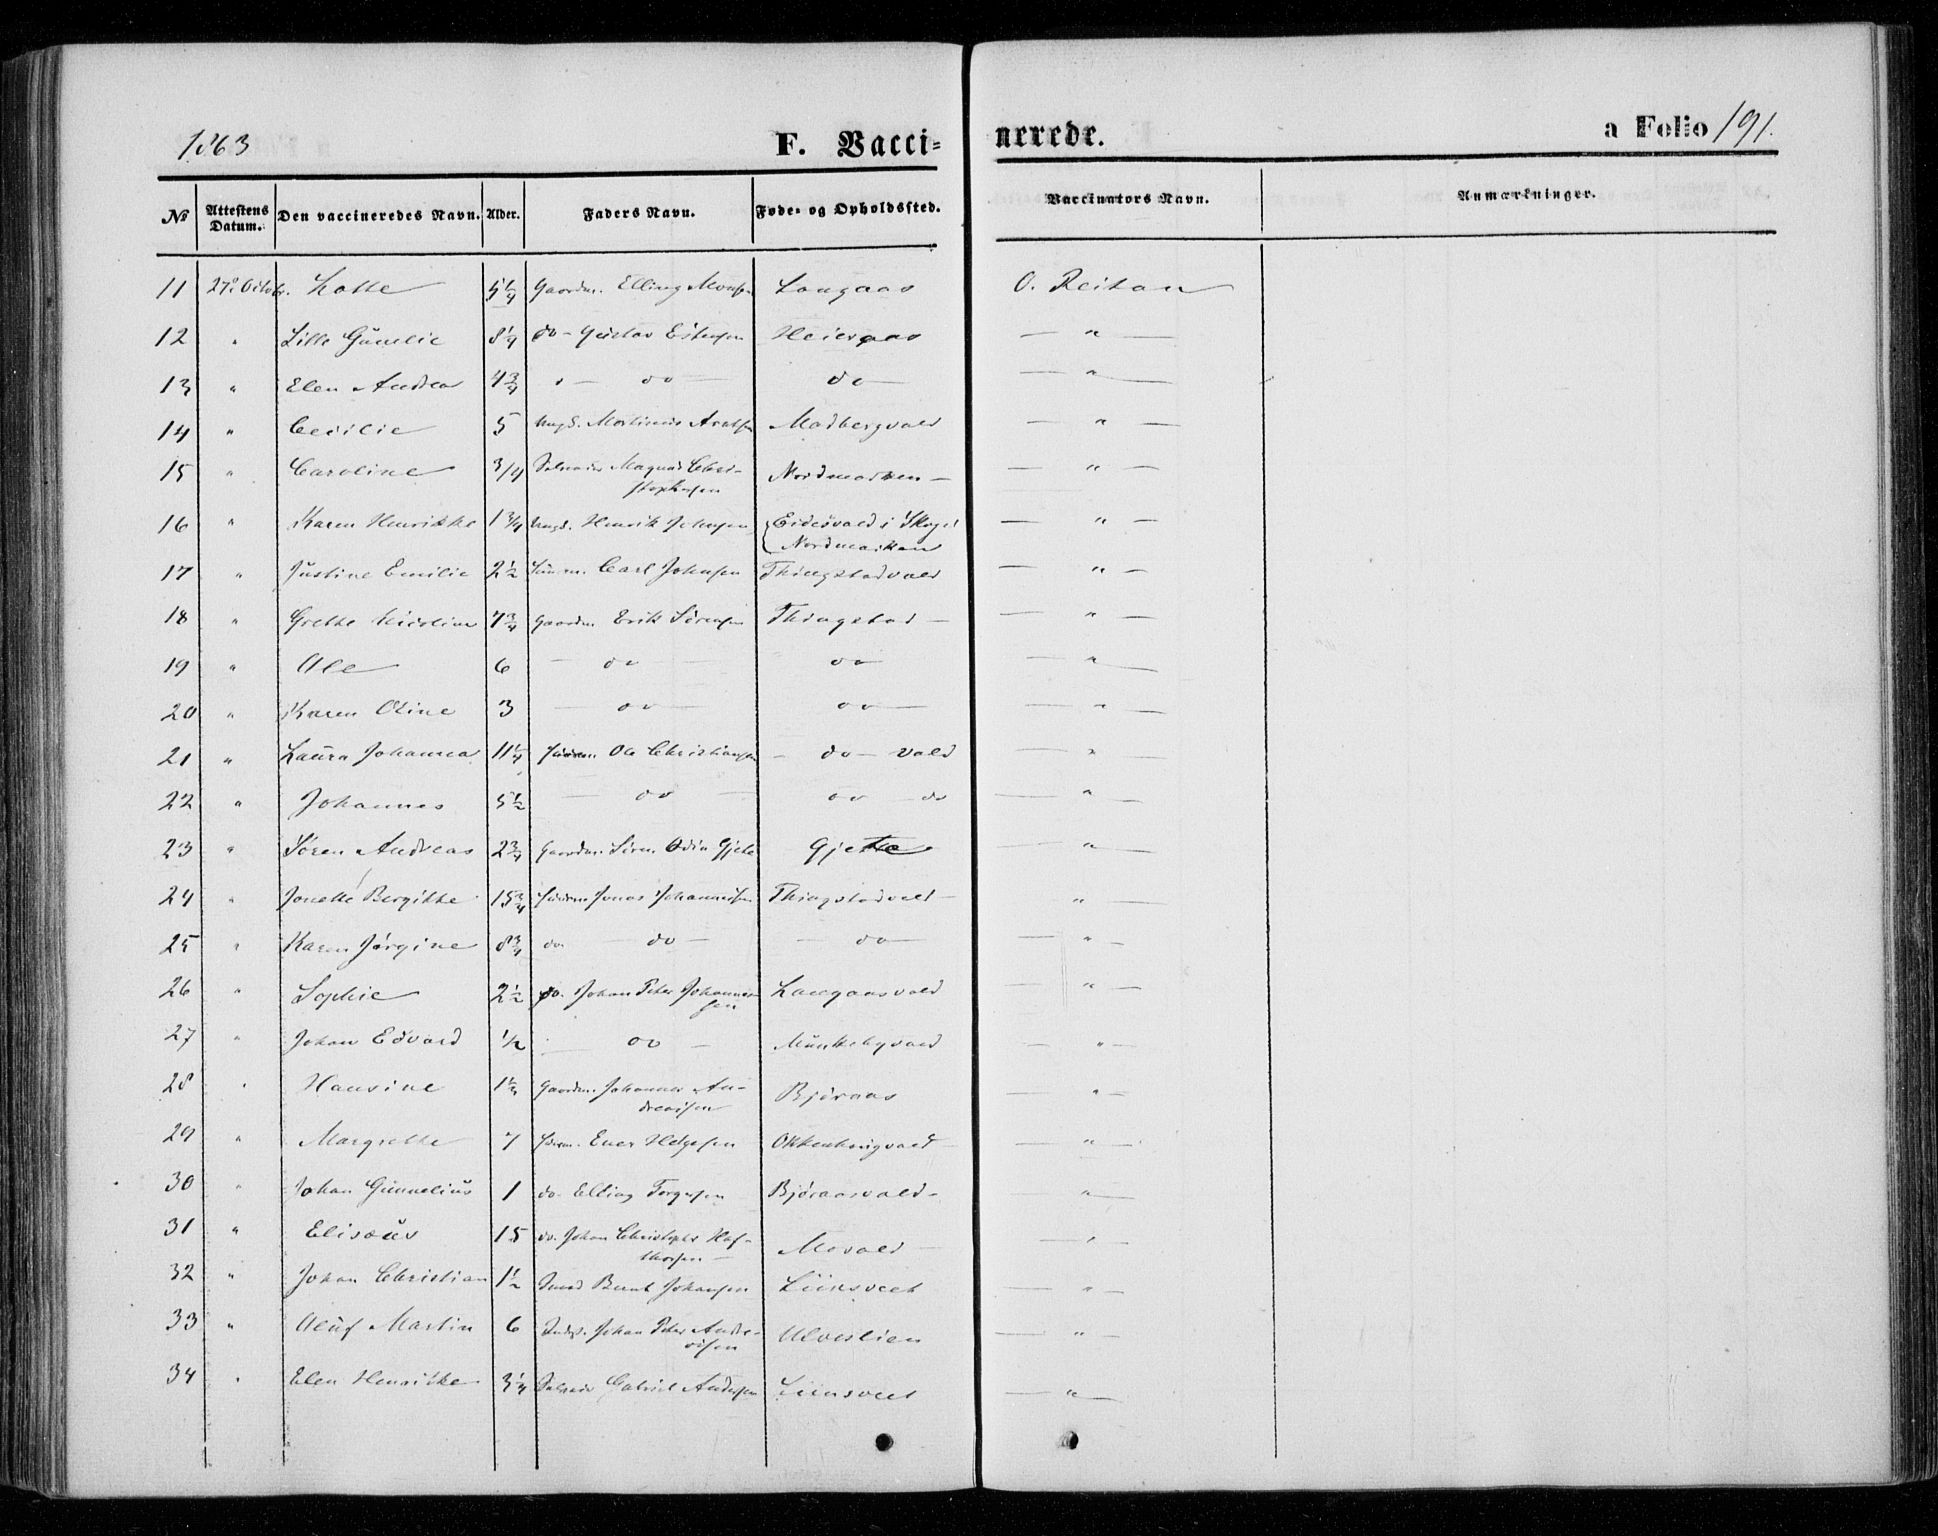 1863 F. Vacci- nerede. a Folio 191.
No Attestens Datum. Den vaccineredes Navn. Alder. Faders Navn. Føde- og Opholdssted. Vaccinators Navn. Anmærkninger.
11 27de Octobr. Lotte 5 1/4 Gaardm. Elling Monsen Langaas O. Reitan
12 " Lille Gunelie 8 1/4 do - Gustav Estensen — " —
13 " Elen Andrea 4 3/4 " — do — do — — " —
14 " Cecilie 5 Ungk. Mortinus — " —
15 " Caroline 3/4 Magnus Chri-
stophersen Nordmarken — — " —
16 " Karen Henrikke 1 3/4 Ungk. Henrik Johnsen Eidesvald i Skog i
Nordmarken — " —
17 " Justine Emilie 2 1/2 Carl Johnsen Thingstadvald — " —
18 " Grethe Nicoline 7 3/4 Gaardm. Erik Sørensen Thingstad — — " —
19 " Ole 6 — do — do — " —
20 " Karen Oline 3 — do — do — — " —
21 " Laura Johanna 11 1/4 Huusm. Ole Christiansen - do - vald — " —
22 " Johannes 5 1/2 — do — do — do — " —
23 " Søren Andreas 2 3/4 Gaardm. Søren Odin Gjete Gjette — " —
24 " Jonette Bergitte 15 3/4 Huusm. Jonas Johannesen Thingstadvald — " —
25 " Karen Jørgine 8 3/4 do. do — — do — — " —
26 " Sophie 2 1/2 do. Johan Peter Johannes-
sen Langaasvald — " —
27 " Johan Edvard 1/2 — do — Munkebyvald — " —
28 " Hansine Gaardm. Johannes An-
dreasen Bjøraas — " —
29 " Margrethe 7 Huusm. Ener Helgesen Okkenhaugvald — " —
30 " Johan Gunnelius 1 do. Elling Torgersen Bjøraasvald - — " —
31 " Elisæus 15 do. Johan Christopher Haf-
thorsen — Movald — " —
32 " Johan Christian 1 1/2 Smed Bernt Johansen — " —
33 " Oluf Martin 6 Indst. Johan Peter Andre-
asen Ulveslien — " —
34 " Elen Henrikke 3 1/4 Gabriel Andersen — " —